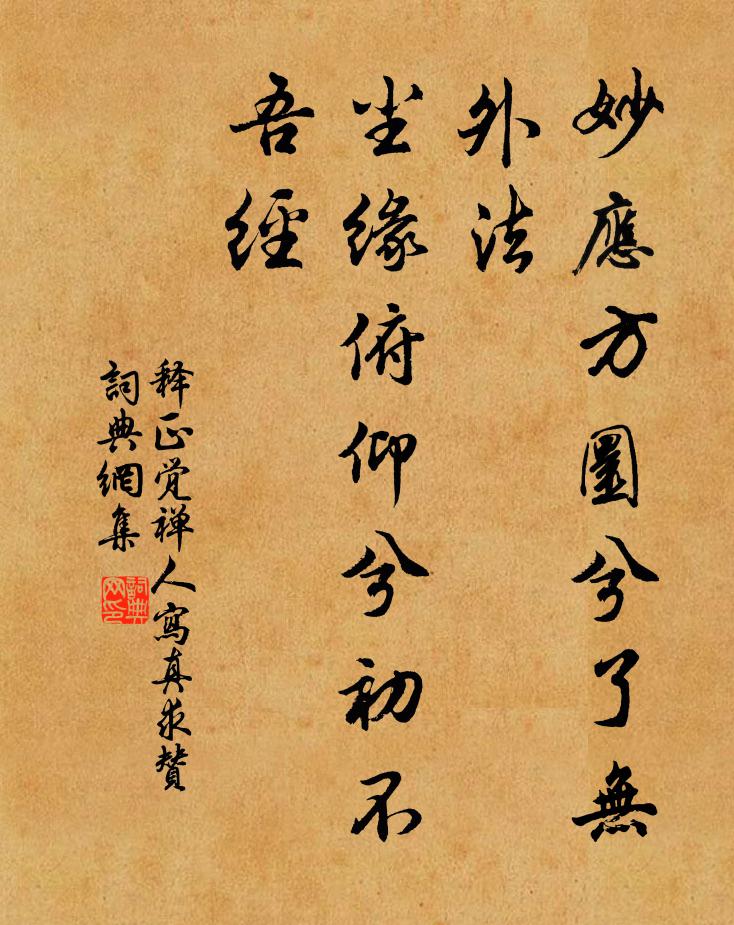 妙應方圓兮了無
外法
尘緣俯仰兮初不
吾經
释正觉禅人寫真求贊
詞典網集
詞典